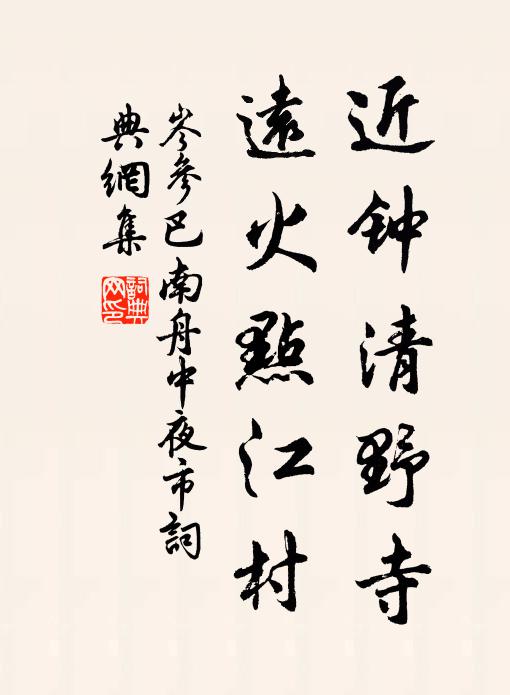 近钟清野寺
遠火點江村
岑參巴南舟中夜市詞
典網集
詞典网印